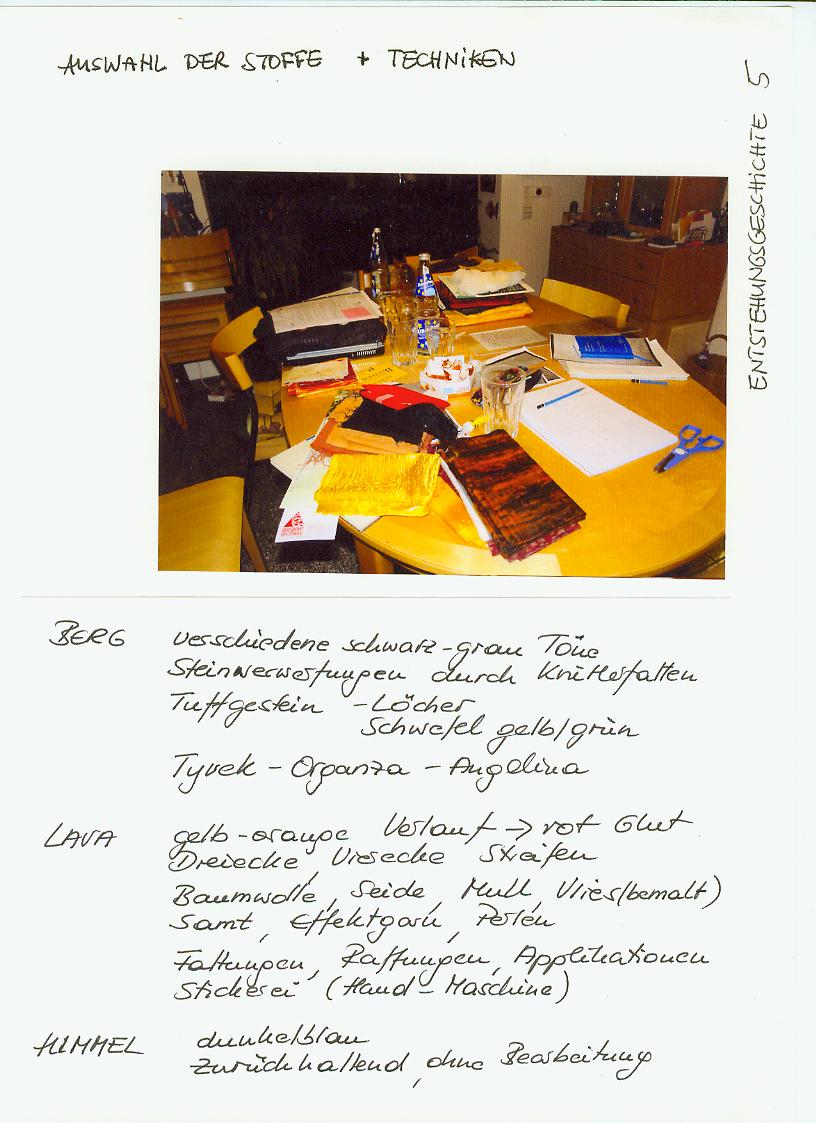 AUSWAHL DER STOFFE + TECHNIKEN
ENTSTEHUNGSGESCHICHTE 5
BERG verschiedene schwarz-grau Töne
Steinverwerfungen durch Knitterfalten
Tuffgestein - Löcher
Schwefel gelb/grün
Tyvek - Organza - Angelina
LAVA gelb-orange Verlauf -> rot Glut
Dreiecke, Vierecke Streifen
Baumwolle, Seide, Mull, Vlies (bemalt)
Samt, Effektgarn, Perlen
Faltungen, Raffungen, Applikationen
Stickerei (Hand-Maschine)
HIMMEL dunkelblau
zurückhaltend, ohne Bearbeitung